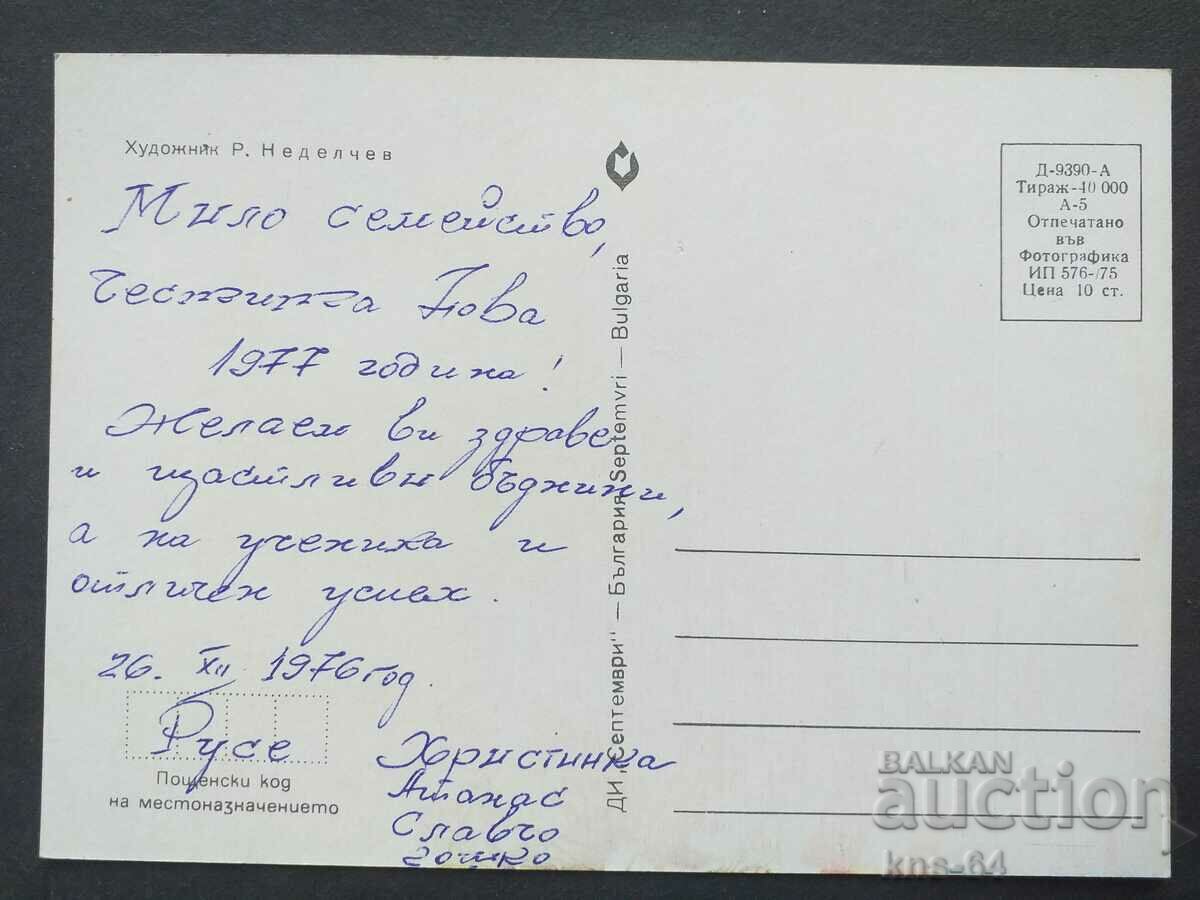 Художник Р. Неделчев
Мило семейство,
Честита Нова
1977 година!
Желаем ви здраве
и щастливи бъднини,
а на ученика и
отличен успех.
26. XII 1976 год.
Русе
Христинка
Атанас
Славчо
Гошко
Пощенски код
на местоназначението
ДИ „Септември" — България Septemvri — Bulgaria
Д-9390-А
Тираж-40 000
А-5
Отпечатано
във
Фотографика
ИП 576-/75
Цена 10 ст.
BALKAN
auction
kns-64